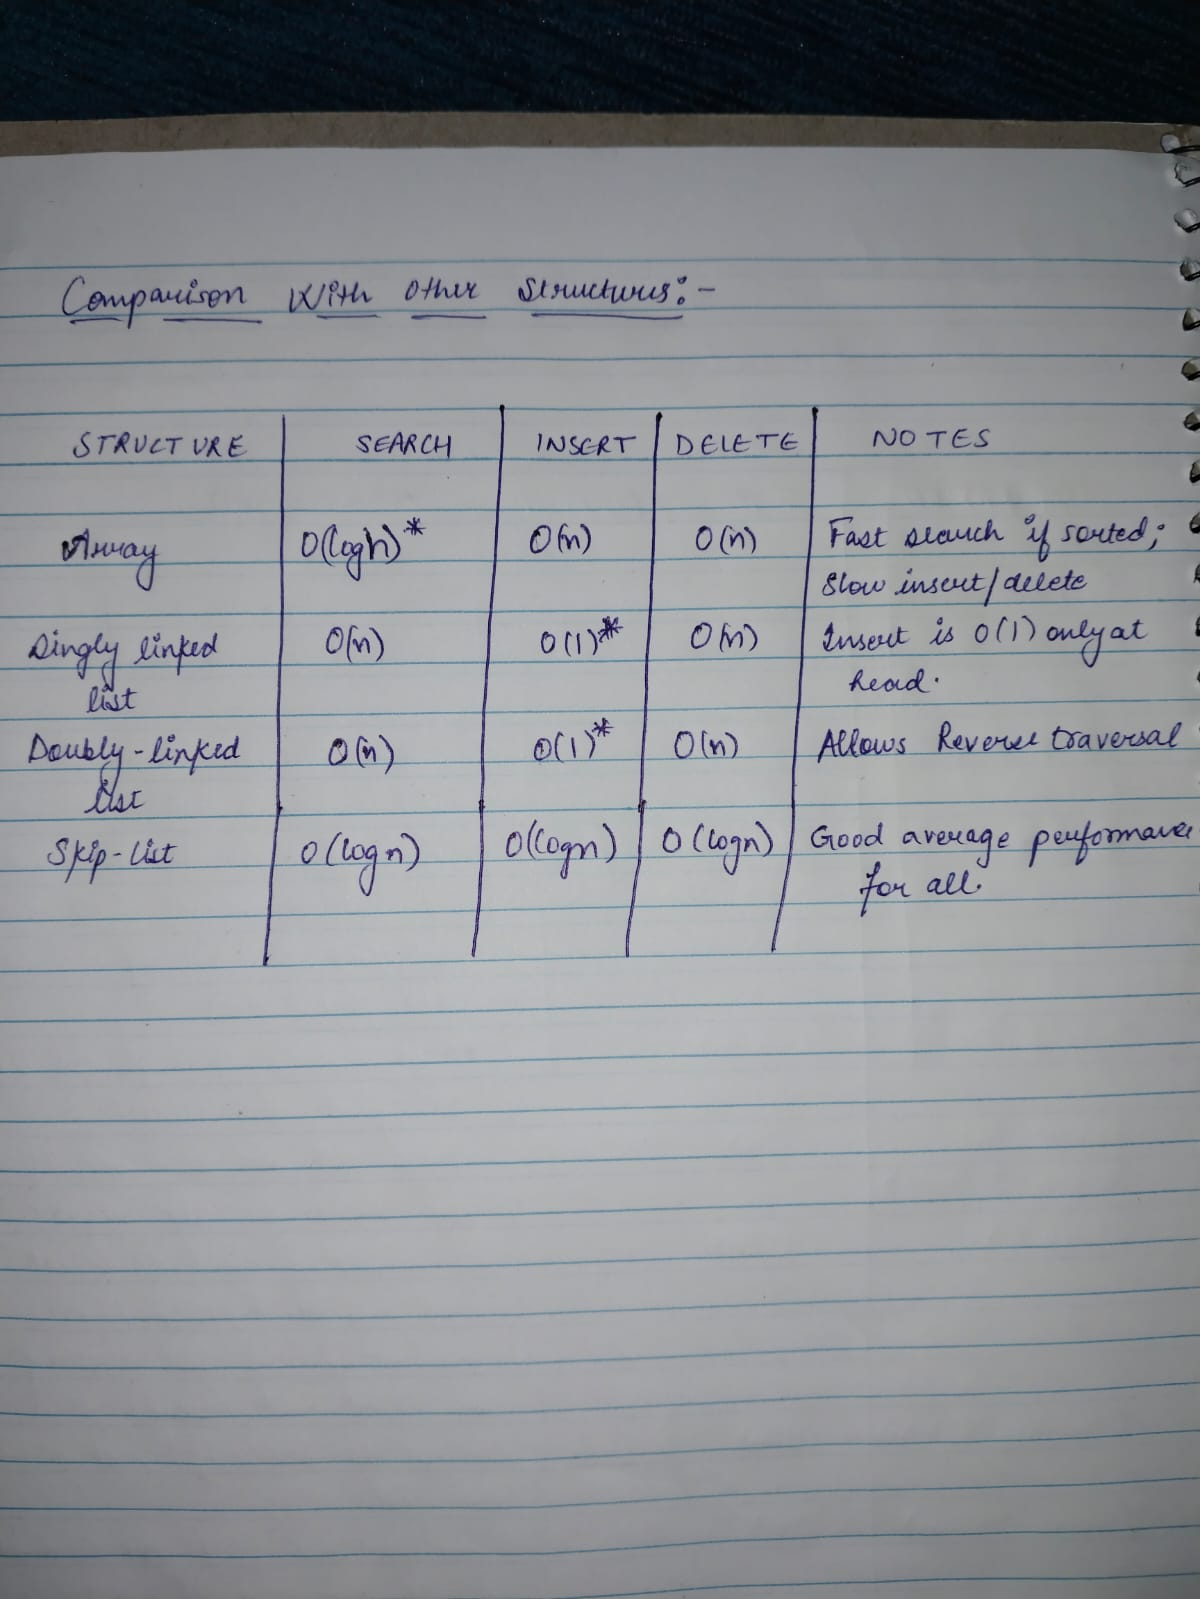 Comparison With other Structures:-
STRUCTURE SEARCH INSERT DELETE NOTES
Array O(logn)* O(n) O(n) Fast search if sorted;
Slow insert/delete
Singly linked O(n) O(1)* O(n) Insert is O(1) only at
list head.
Doubly-linked O(n) O(1)* O(n) Allows Reverse traversal
list
Skip-List O(logn) O(logn) O(logn) Good average performance
for all.